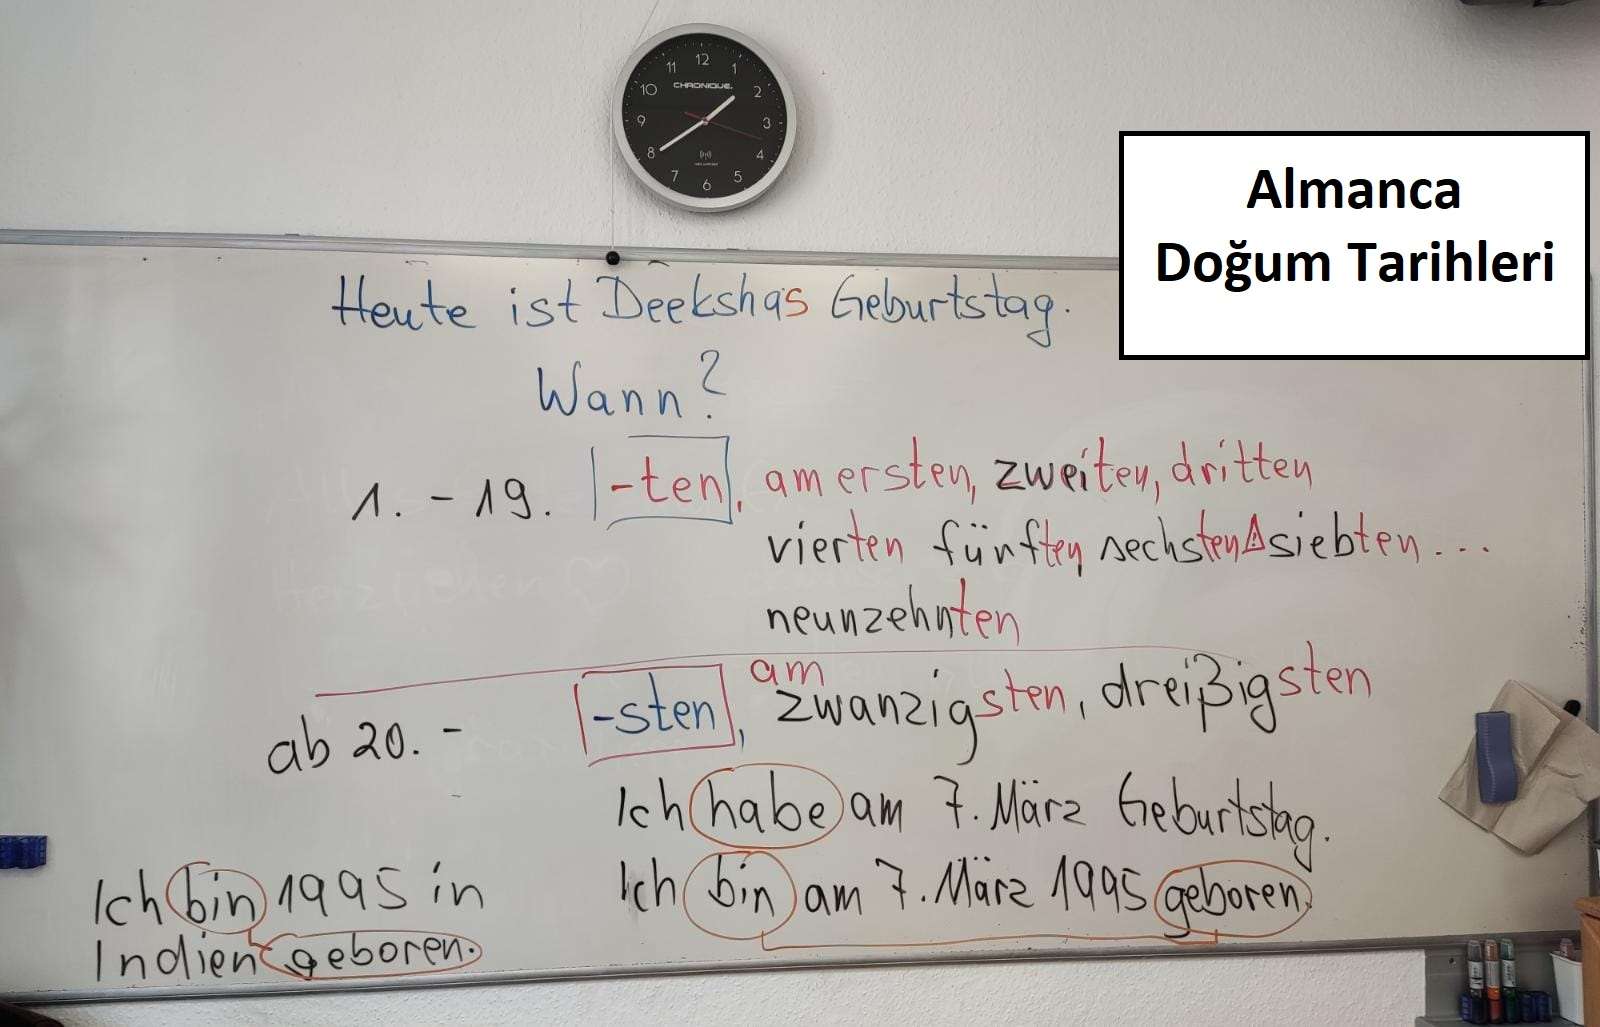 12
11 1
CHRONIQUE.
10 2
9 3
8 4
7 5
6
Almanca
Doğum Tarihleri
Heute ist Deekshas Geburtstag.
Wann?
1. - 19. -ten, am ersten, zweiten, dritten
vierten fünften sechsten siebten...
neunzehnten
ab 20. - -sten, am zwanzigsten, dreißigsten
Ich habe am 7. März Geburtstag.
Ich bin am 7. März 1995 geboren.
Ich bin 1995 in
Indien geboren.